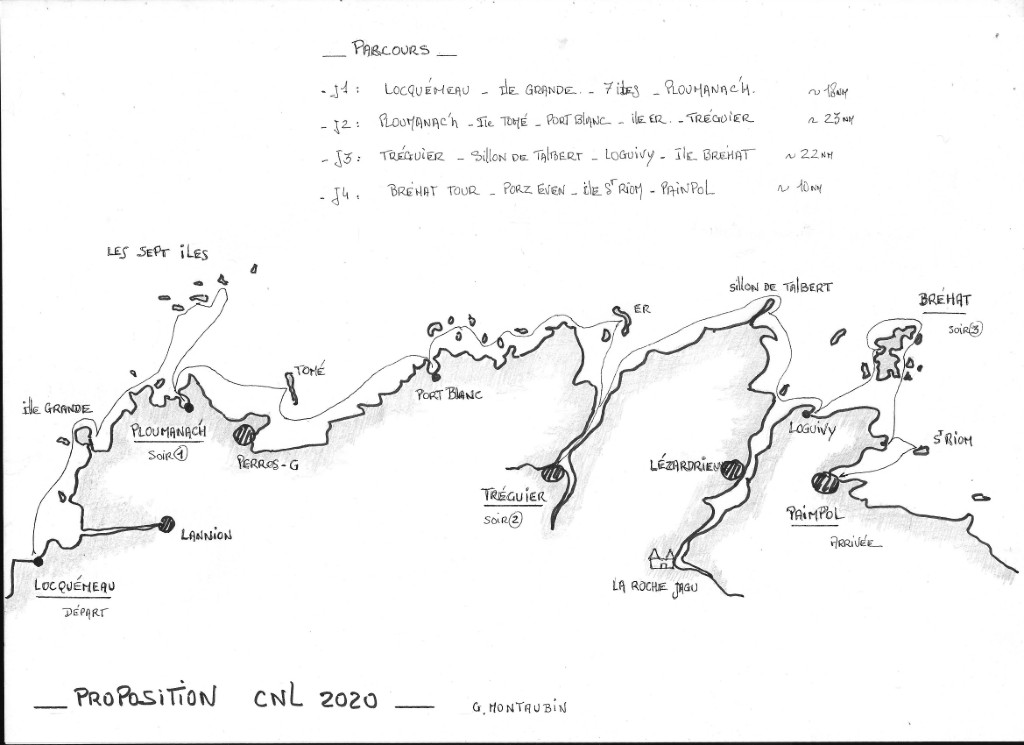 — PARCOURS —
- J1 : LOCQUÉMEAU - ILE GRANDE - 7 ILES - PLOUMANAC'H. ~ 18NM
- J2 : PLOUMANAC'H - ILE TOMÉ - PORT BLANC - ILE ER - TRÉGUIER ~ 23NM
- J3 : TRÉGUIER - SILLON DE TALBERT - LOGUIVY - ILE BRÉHAT ~ 22NM
- J4 : BRÉHAT TOUR - PORZ EVEN - ILE ST RIOM - PAINPOL ~ 10NM
LES SEPT ILES
SILLON DE TALBERT
BRÉHAT
SOIR 3
ER
TOMÉ
PORT BLANC
ILE GRANDE
PLOUMANAC'H
SOIR 1
PERROS-G
LOGUIVY
ST RIOM
LÉZARDRIEU
TRÉGUIER
SOIR 2
PAIMPOL
ARRIVÉE
LANNION
LOCQUÉMEAU
DÉPART
LA ROCHE JAGU
— PROPOSITION CNL 2020 —
G. MONTAUBIN